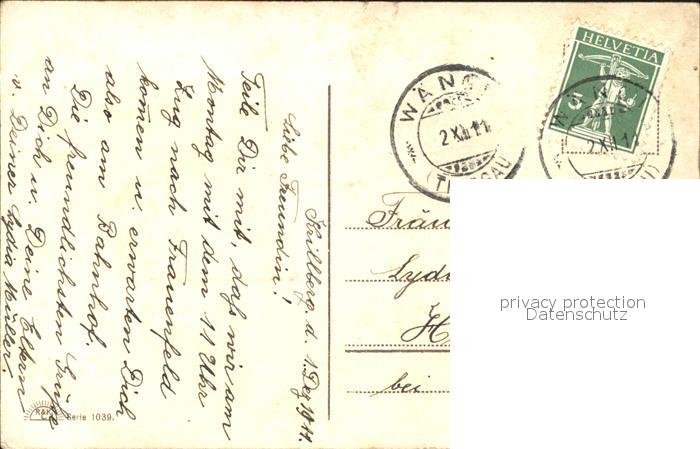 Hillberg, d. 1. Dez. 1911.
Liebe Freundin!
Teile Dir mit, daß wir am
Montag mit dem 11 Uhr
Zug nach Frauenfeld
komen u. erwarten Dich
also am Bahnhof.
Die freundlichsten Grüße
an Dich u. Deine Eltern
v. Deiner Lydia Müller.
R&K
Serie 1039.
HELVETIA
5
WÄNGI
2.XII.11
(THURGAU)
WÄNGI
2.XII.11
Fräu
Lydi
H
bei
privacy protection
Datenschutz